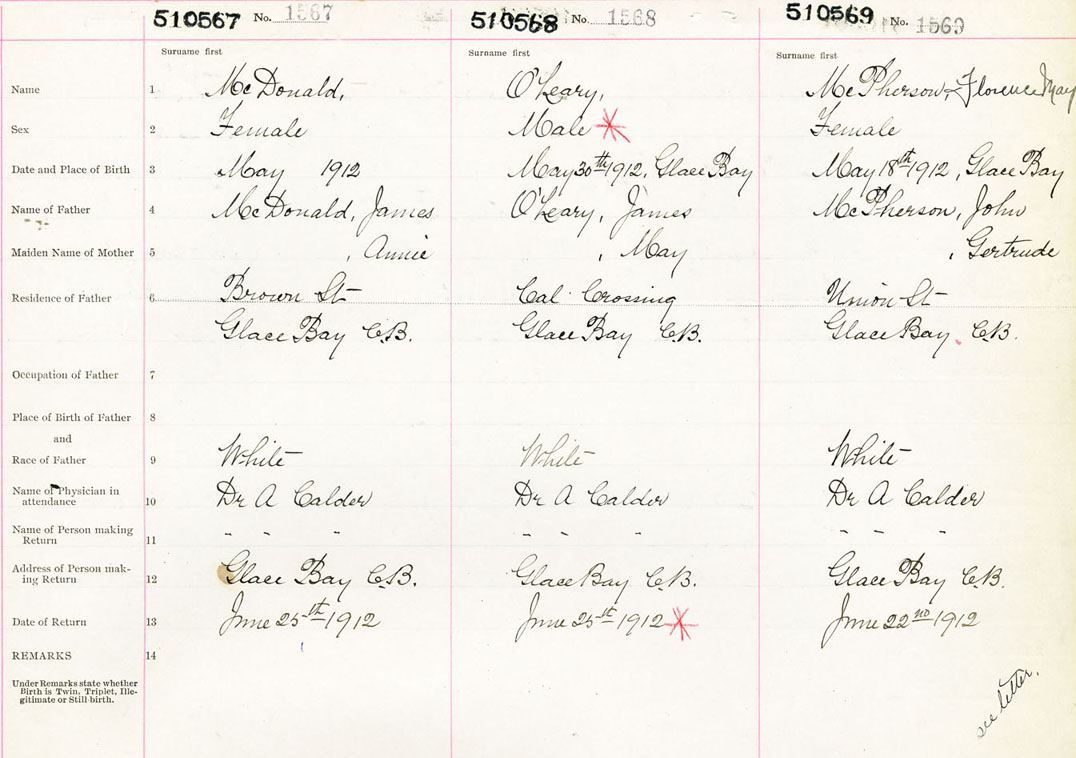 510567 No. 1567 510568 No. 1568 510569 No. 1569
Surname first Surname first Surname first
Name 1 McDonald, O'Leary, McPherson, Florence May
Sex 2 Female Male Female
Date and Place of Birth 3 May 1912 May 30th 1912, Glace Bay May 18th 1912, Glace Bay
Name of Father 4 McDonald, James O'Leary, James McPherson, John
Maiden Name of Mother 5 , Annie , May , Gertrude
Residence of Father 6 Brown St Cal. Crossing Union St
Glace Bay C.B. Glace Bay C.B. Glace Bay C.B.
Occupation of Father 7
Place of Birth of Father 8
and
Race of Father 9 White White White
Name of Physician in
attendance 10 Dr A Calder Dr A Calder Dr A Calder
Name of Person making
Return 11 " " " " " " " " "
Address of Person mak-
ing Return 12 Glace Bay C.B. Glace Bay C.B. Glace Bay C.B.
Date of Return 13 June 25th 1912 June 25th 1912 June 22nd 1912
REMARKS 14
Under Remarks state whether
Birth is Twin, Triplet, Ille-
gitimate or Still-birth.
see letter.